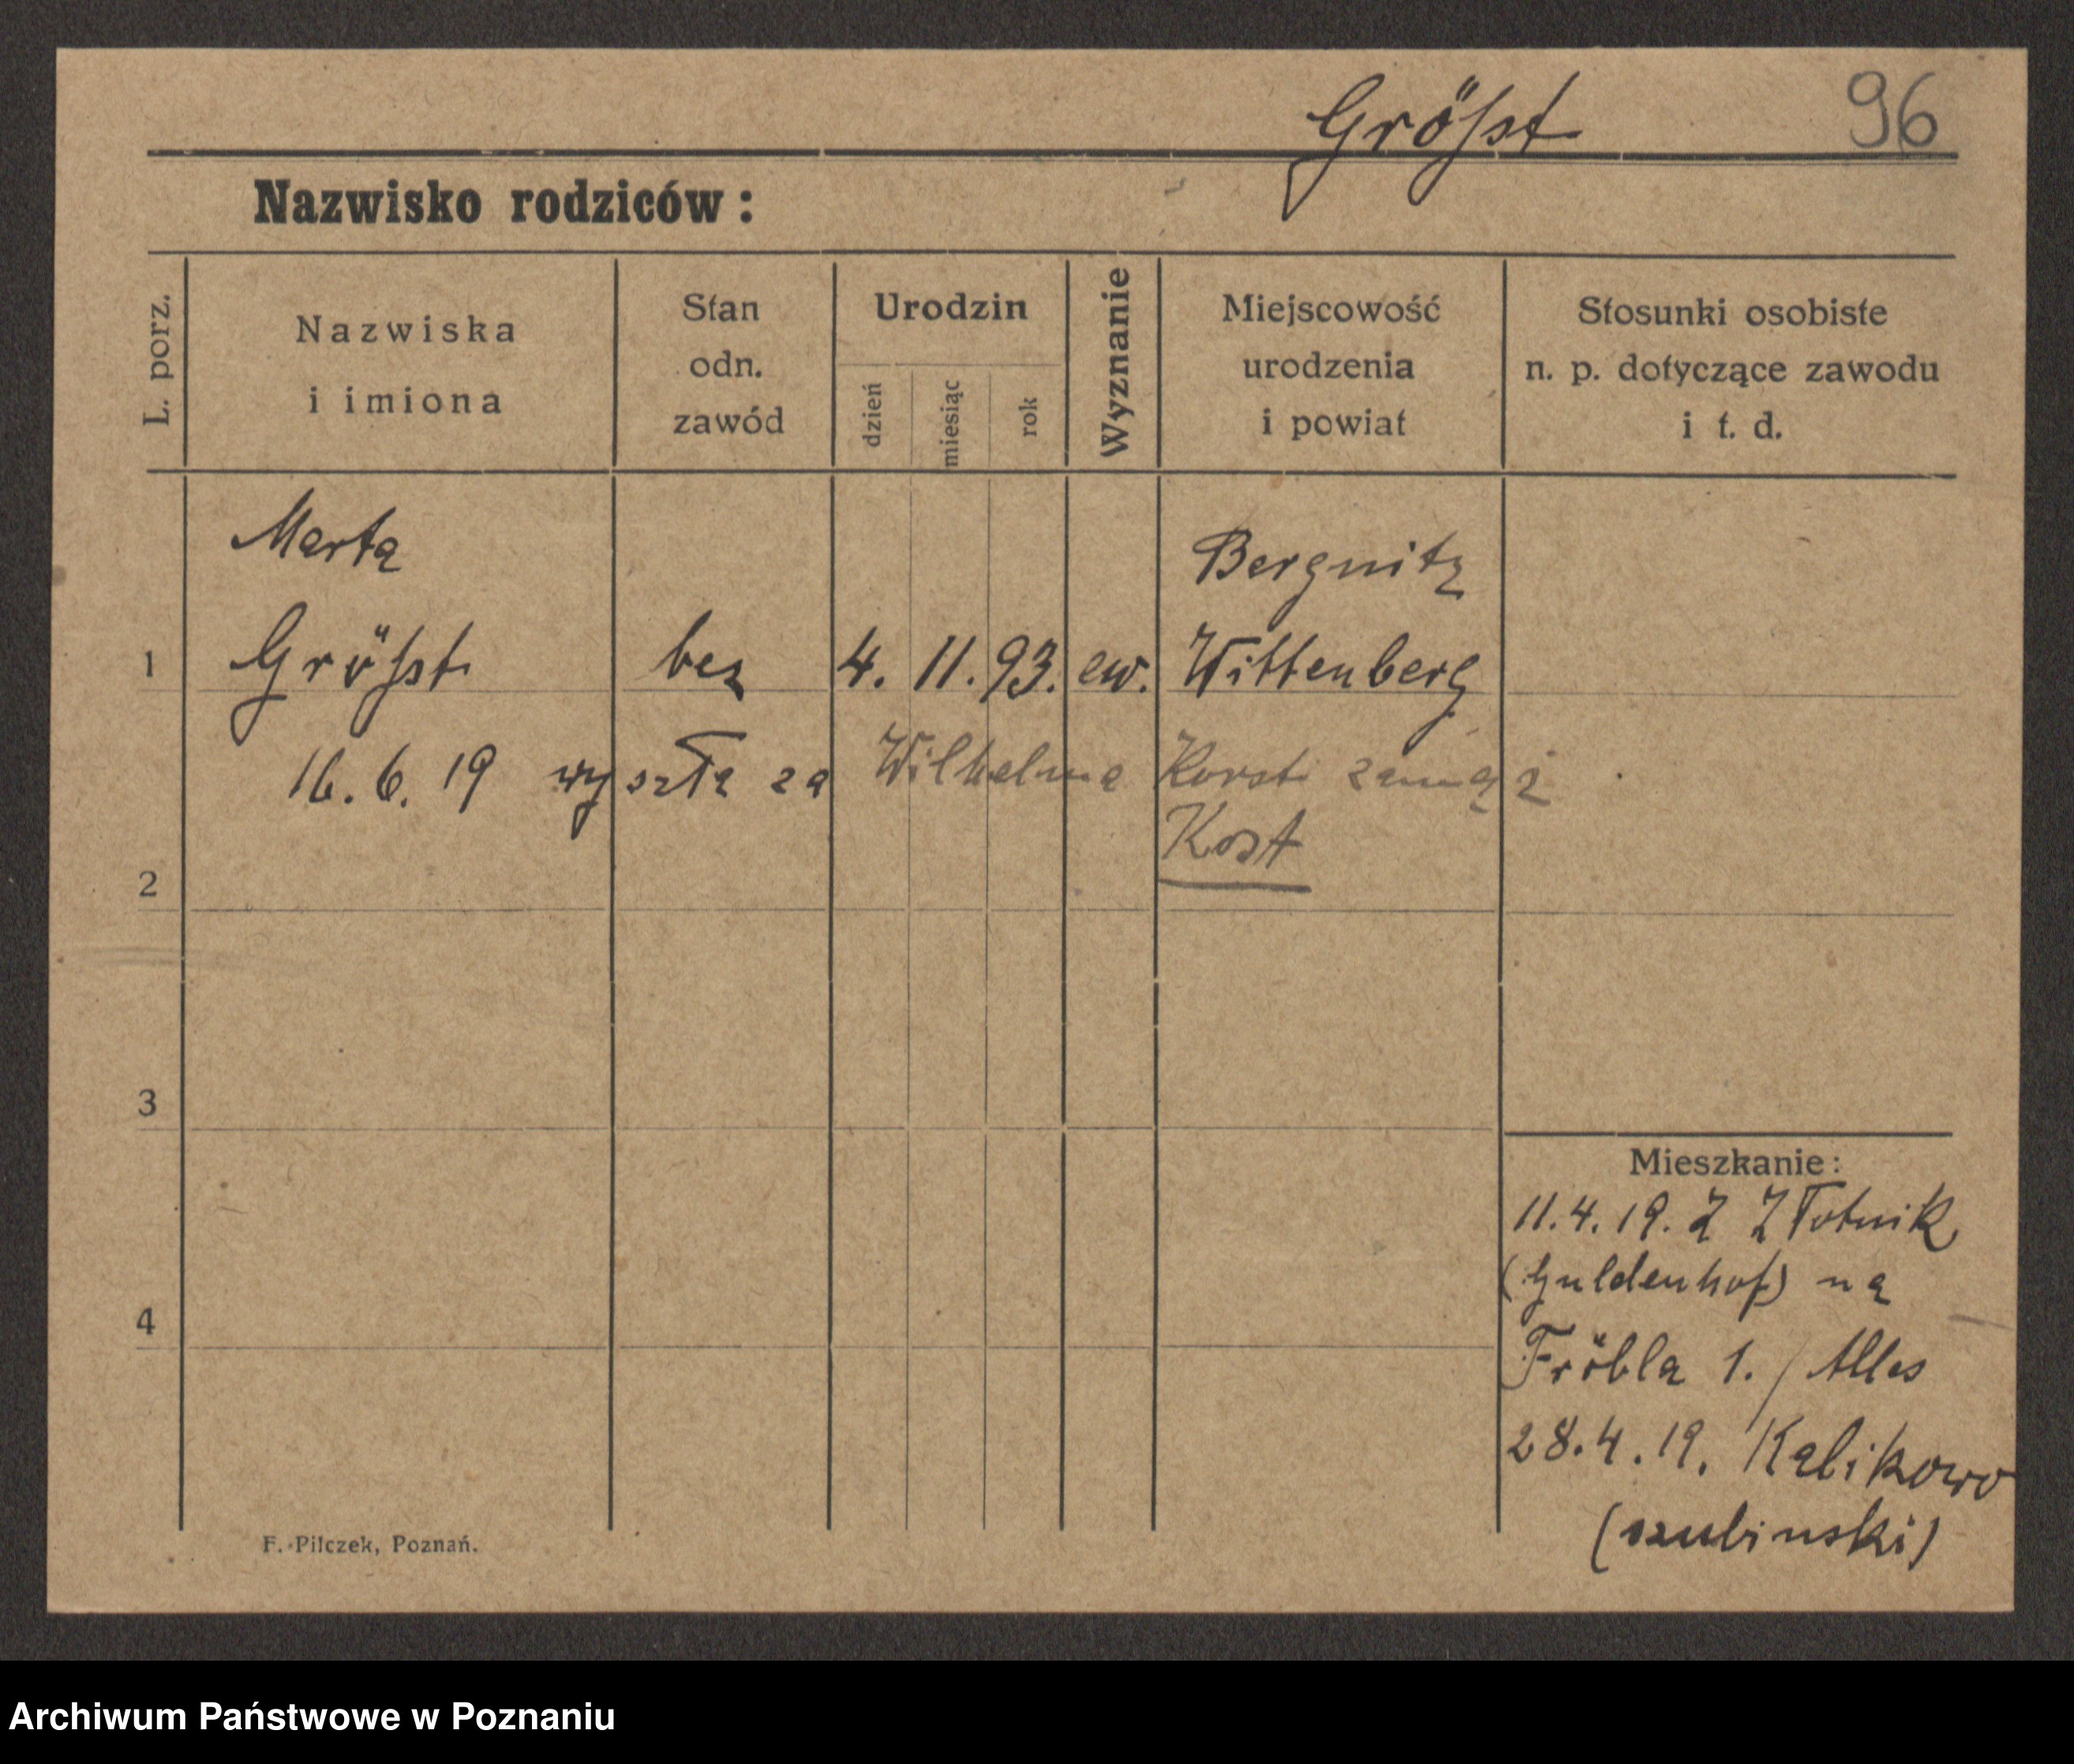 Größst 96
Nazwisko rodziców :
L. porz.
Nazwiska
i imiona
Stan
odn.
zawód
Urodzin
dzień
miesiąc
rok
Wyznanie
Miejscowość
urodzenia
i powiat
Stosunki osobiste
n. p. dotyczące zawodu
i t. d.
Marta Bergnitz
1 Größst bez 4. 11. 93. ew. Wittenberg
16. 6. 19 wyszła za Wilhelma Korst zamąż
Kost
2
3
4
Mieszkanie :
11. 4. 19. Z Złotnik
(Guldenhof) na
Fröbla 1. / Alles
28. 4. 19. Kalikowo
(szubinski)
F. Pilczek, Poznań.
Archiwum Państwowe w Poznaniu